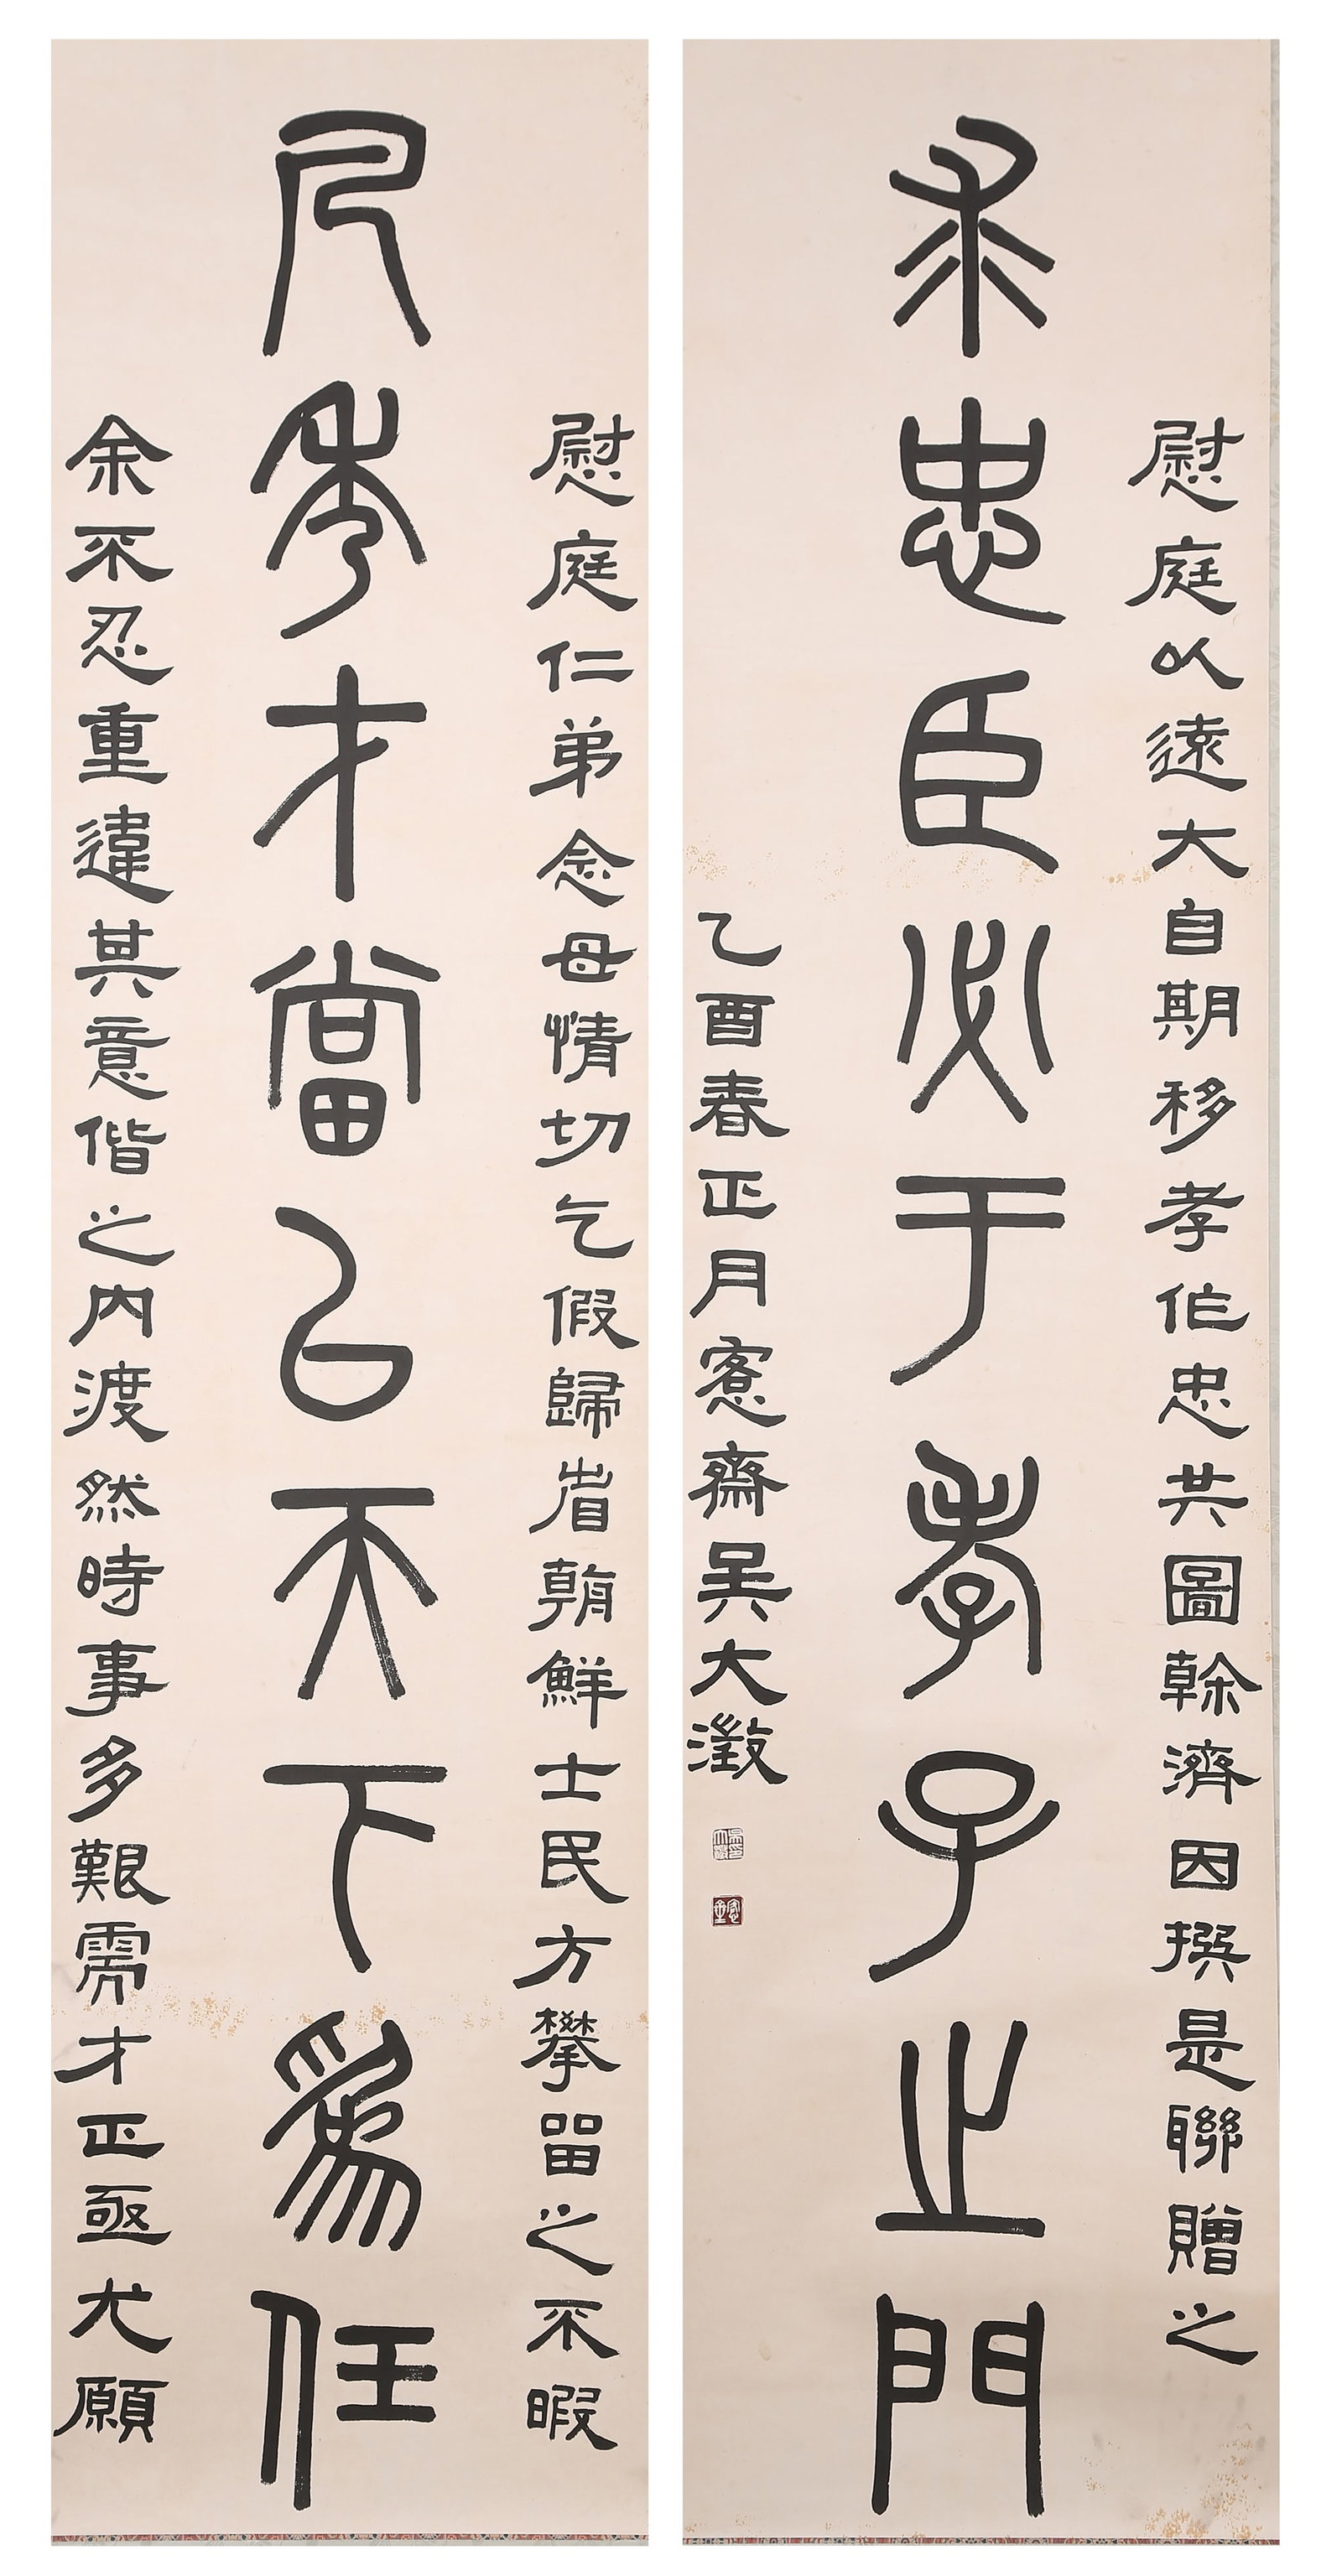 求忠臣必于孝子之門
凡秀才當以天下為任
慰庭仁弟念母情切乞假歸省朝鮮士民方攀留之不暇
余不忍重違其意偕之內渡然時事多艱需才正亟尤願
慰庭以遠大自期移孝作忠共圖幹濟因撰是聯贈之
乙酉春正月愙齋吳大澂